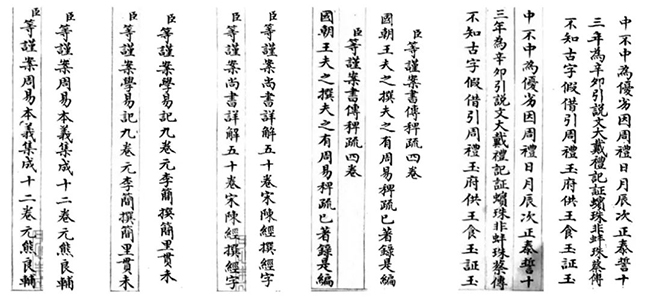 中不中為優劣因周禮日月辰次正泰誓十
三年為辛卯引說文大戴禮記証蠙珠非蚌珠蔡傳
不知古字假借引周禮玉府供王食玉証玉
中不中為優劣因周禮日月辰次正泰誓十
三年為辛卯引說文大戴禮記証蠙珠非蚌珠蔡傳
不知古字假借引周禮玉府供王食玉証玉
臣等謹案書傳稗疏四卷
國朝王夫之撰夫之有周易稗疏已著錄是編
臣等謹案書傳稗疏四卷
國朝王夫之撰夫之有周易稗疏已著錄是編
臣等謹案尚書詳解五十卷宋陳經撰經字
臣等謹案尚書詳解五十卷宋陳經撰經字
臣等謹案學易記九卷元李簡撰簡里貫未
臣等謹案學易記九卷元李簡撰簡里貫未
臣等謹案周易本義集成十二卷元熊良輔
臣等謹案周易本義集成十二卷元熊良輔